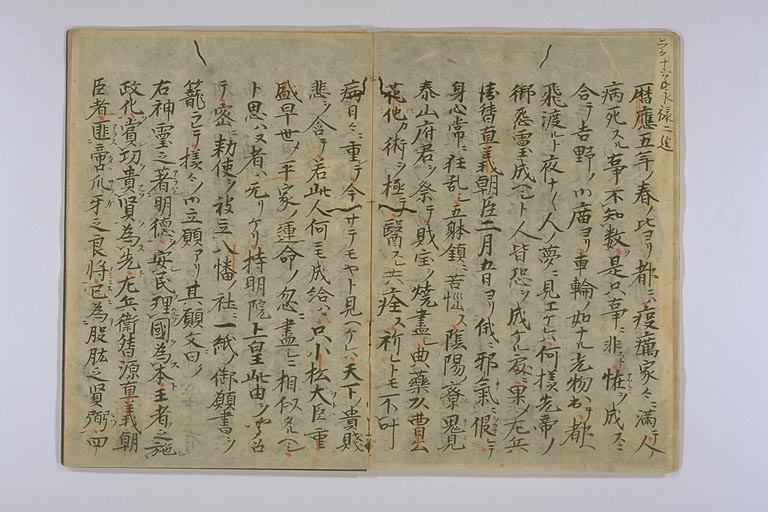 暦應五年ノ春ノ比ヨリ都ニハ疫癘家々ニ満テ人ノ
病死スル事不知数是只事ニ非スト怪ヲ成スニ
合テ吉野ノ御廟ヨリ車輪ノ如ナル光物出テ都ヘ
飛渡ルト夜ナ〱人ノ夢ニ見エケレハ何様先帝ノ
御怨霊成ヘシト人皆恐ヲ成ケル處ニ果メ左兵
衛督直義朝臣二月五日ヨリ俄ニ邪氣ニ侵サレテ
身心常ニ狂乱シ五躰鎮ニ苦悩ス陰陽ノ寮鬼見
泰山府君ヲ祭テ財宝ヲ焼盡シ典藥以曹公
花他カ術ヲ極テ醫スレ共不痊ス祈レトモ不叶
病日々ニ重テ今ハサテモヤト見ヘケレハ天下ノ貴賤
悲ヲ含テ若此人何ニモ成給ハヽ只小松大臣重
盛早世メ平家ノ運命ノ忽ニ盡シニ相似タルヘシ
ト思ハヌ者ハ无リケリ持明院上皇此由ヲ聞召
テ密ニ勅使ヲ被立八幡ノ社ニ一紙ノ御願書ヲ
籠ラレテ様々ノ御立願アリ其願文曰ク
右神霊之著明徳ヲ安民理國為本王者之施
政化ヲ賞功貴賢為先左兵衛督源直義朝
臣者匪啻爪牙之良将已為股肱之賢弼四